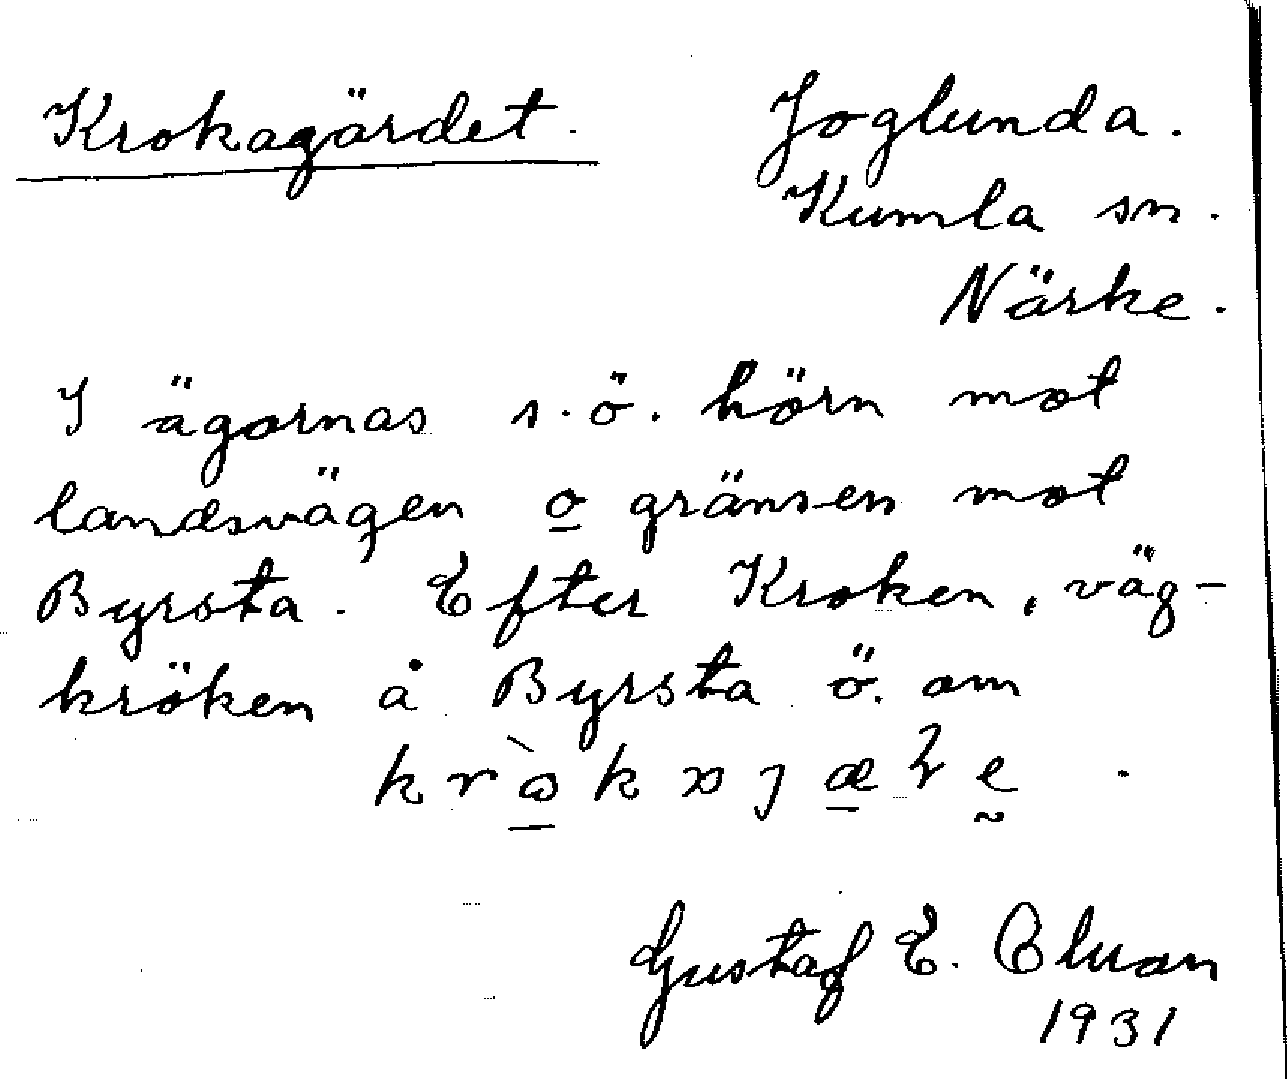 Krokagärdet. Joglunda.
Kumla sn.
Närke.
I ägornas s.ö. hörn mot
landsvägen o gränsen mot
Byrsta. Efter Kroken, väg-
kröken å Byrsta ö. om
Gustaf E. Eluan
1931